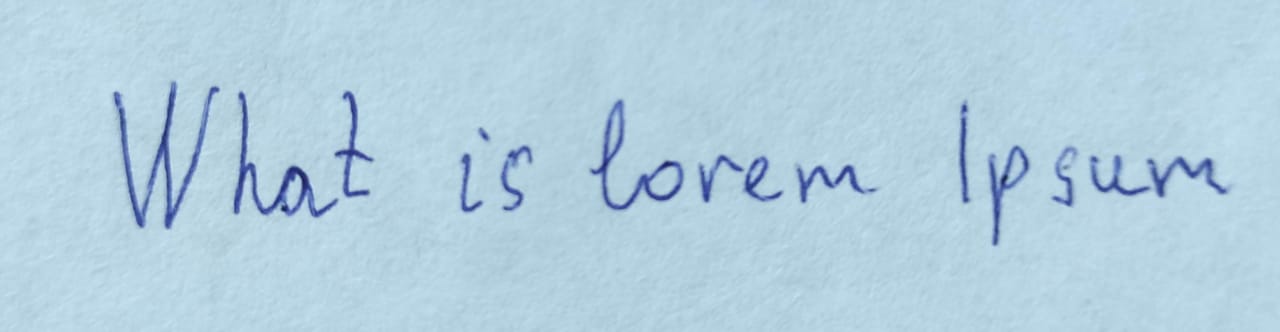 What is lorem Ipsum